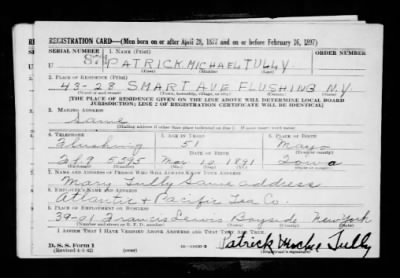 REGISTRATION CARD—(Men born on or after April 28, 1877 and on or before February 16, 1897)
SERIAL NUMBER 1. NAME (Print)
U PATRICK MICHAEL TULLY
(First) (Middle) (Last)
2. PLACE OF RESIDENCE (Print)
43-28 SMART AVE FLUSHING N.Y.
(Number and street) (Town, township, village, or city) (County) (State)
[THE PLACE OF RESIDENCE GIVEN ON THE LINE ABOVE WILL DETERMINE LOCAL BOARD
JURISDICTION; LINE 2 OF REGISTRATION CERTIFICATE WILL BE IDENTICAL]
3. MAILING ADDRESS
Same
4. TELEPHONE 5. AGE IN YEARS 6. PLACE OF BIRTH
Flushing 51 Mayo
DATE OF BIRTH
5595 1891
7. NAME AND ADDRESS OF PERSON WHO WILL ALWAYS KNOW YOUR ADDRESS
Mary Tully Same address
8. EMPLOYER'S NAME AND ADDRESS
Atlantic & Pacific Tea Co.
9. PLACE OF EMPLOYMENT OR BUSINESS
39-01 Francis Lewis Bayside New York
I AFFIRM THAT I HAVE VERIFIED ABOVE ANSWERS AND THAT THEY ARE TRUE.
D. S. S. Form 1
Patrick Tully